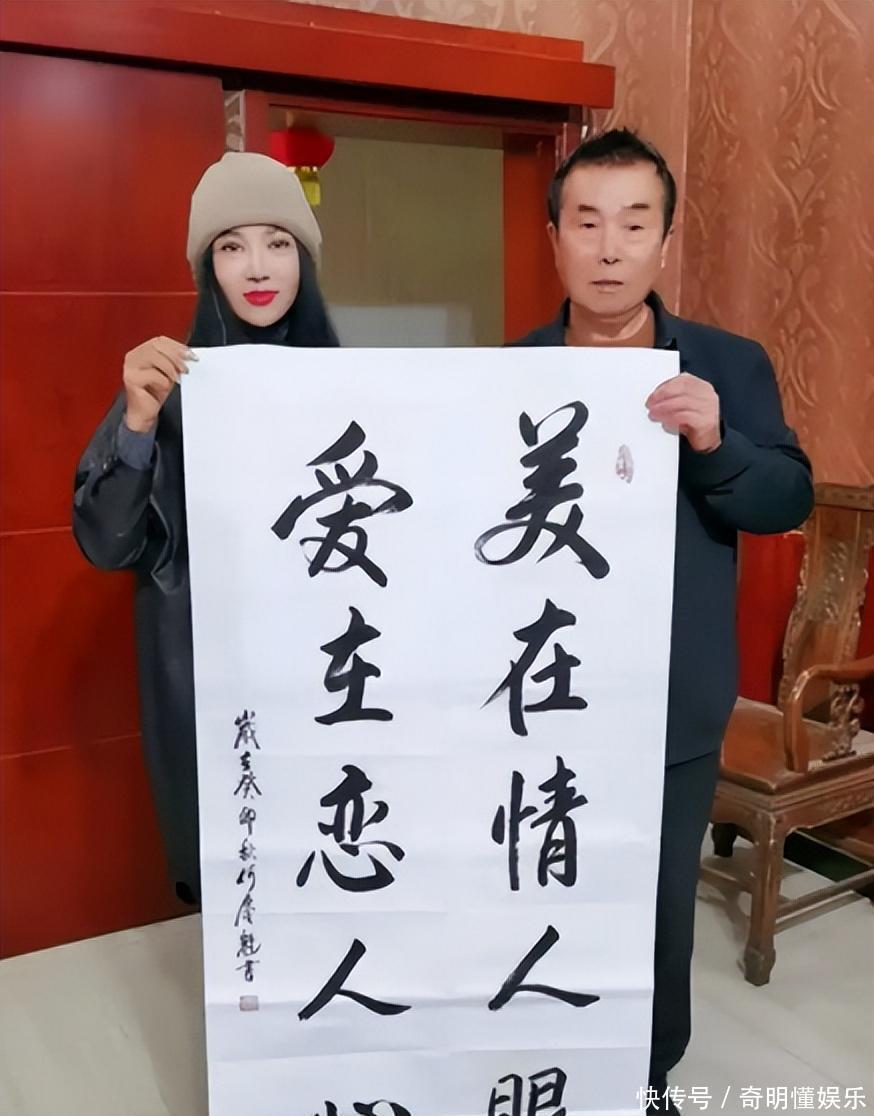 美在情人眼
爱在恋人
岁在癸卯秋何庆魁书
快传号／奇明懂娱乐